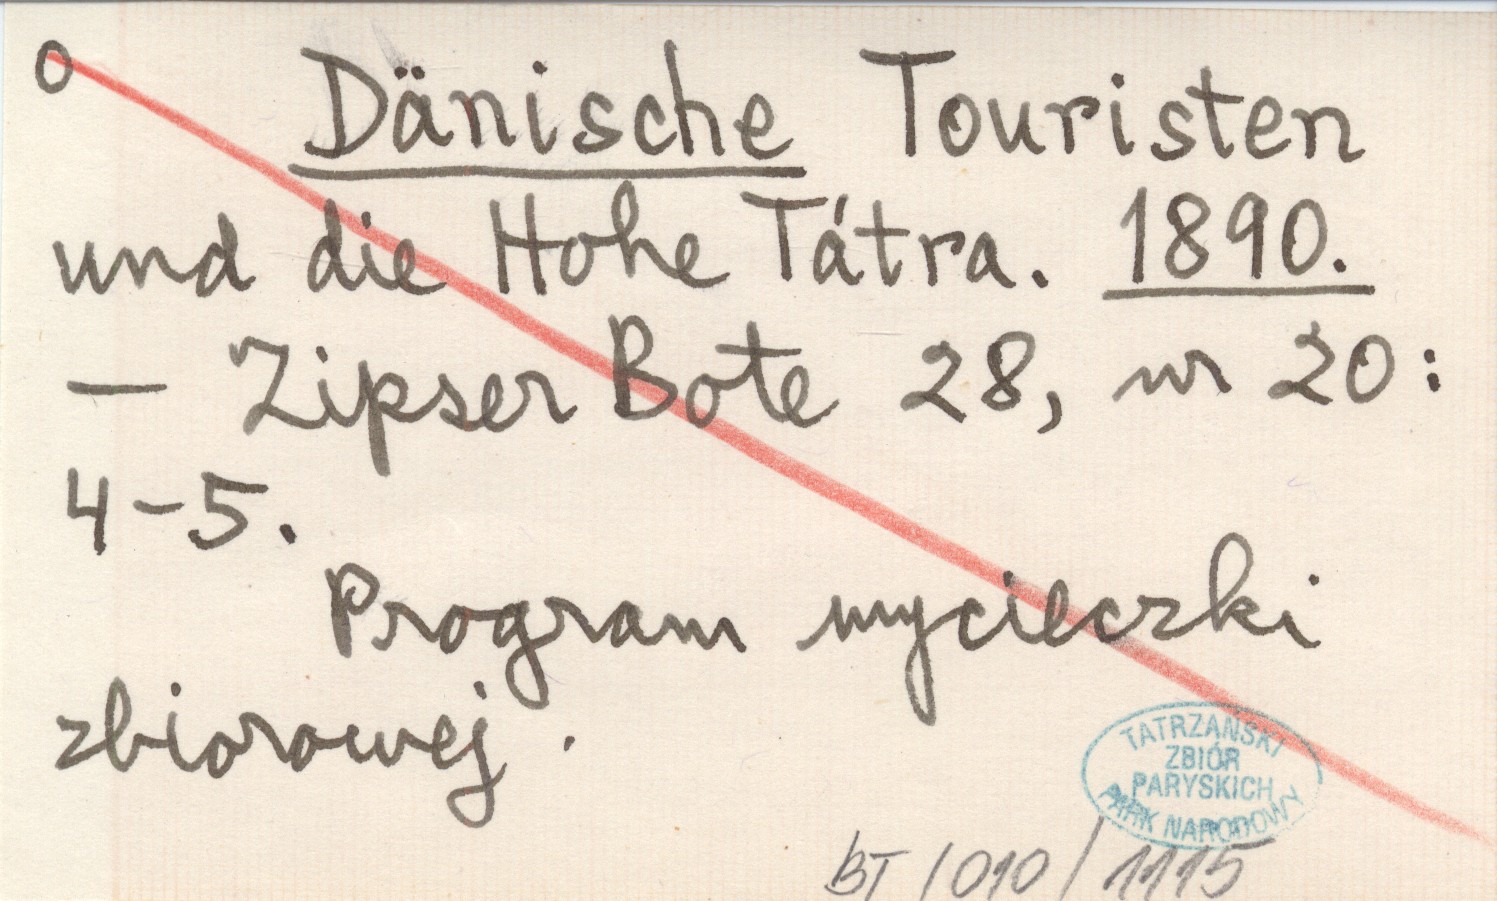 o Dänische Touristen
und die Hohe Tátra. 1890.
— Zipser Bote 28, nr 20:
4-5.
Program wycieczki
zbiorowej.
TATRZAŃSKI
ZBIÓR
PARYSKICH
PARK NARODOWY
BT/010/1115